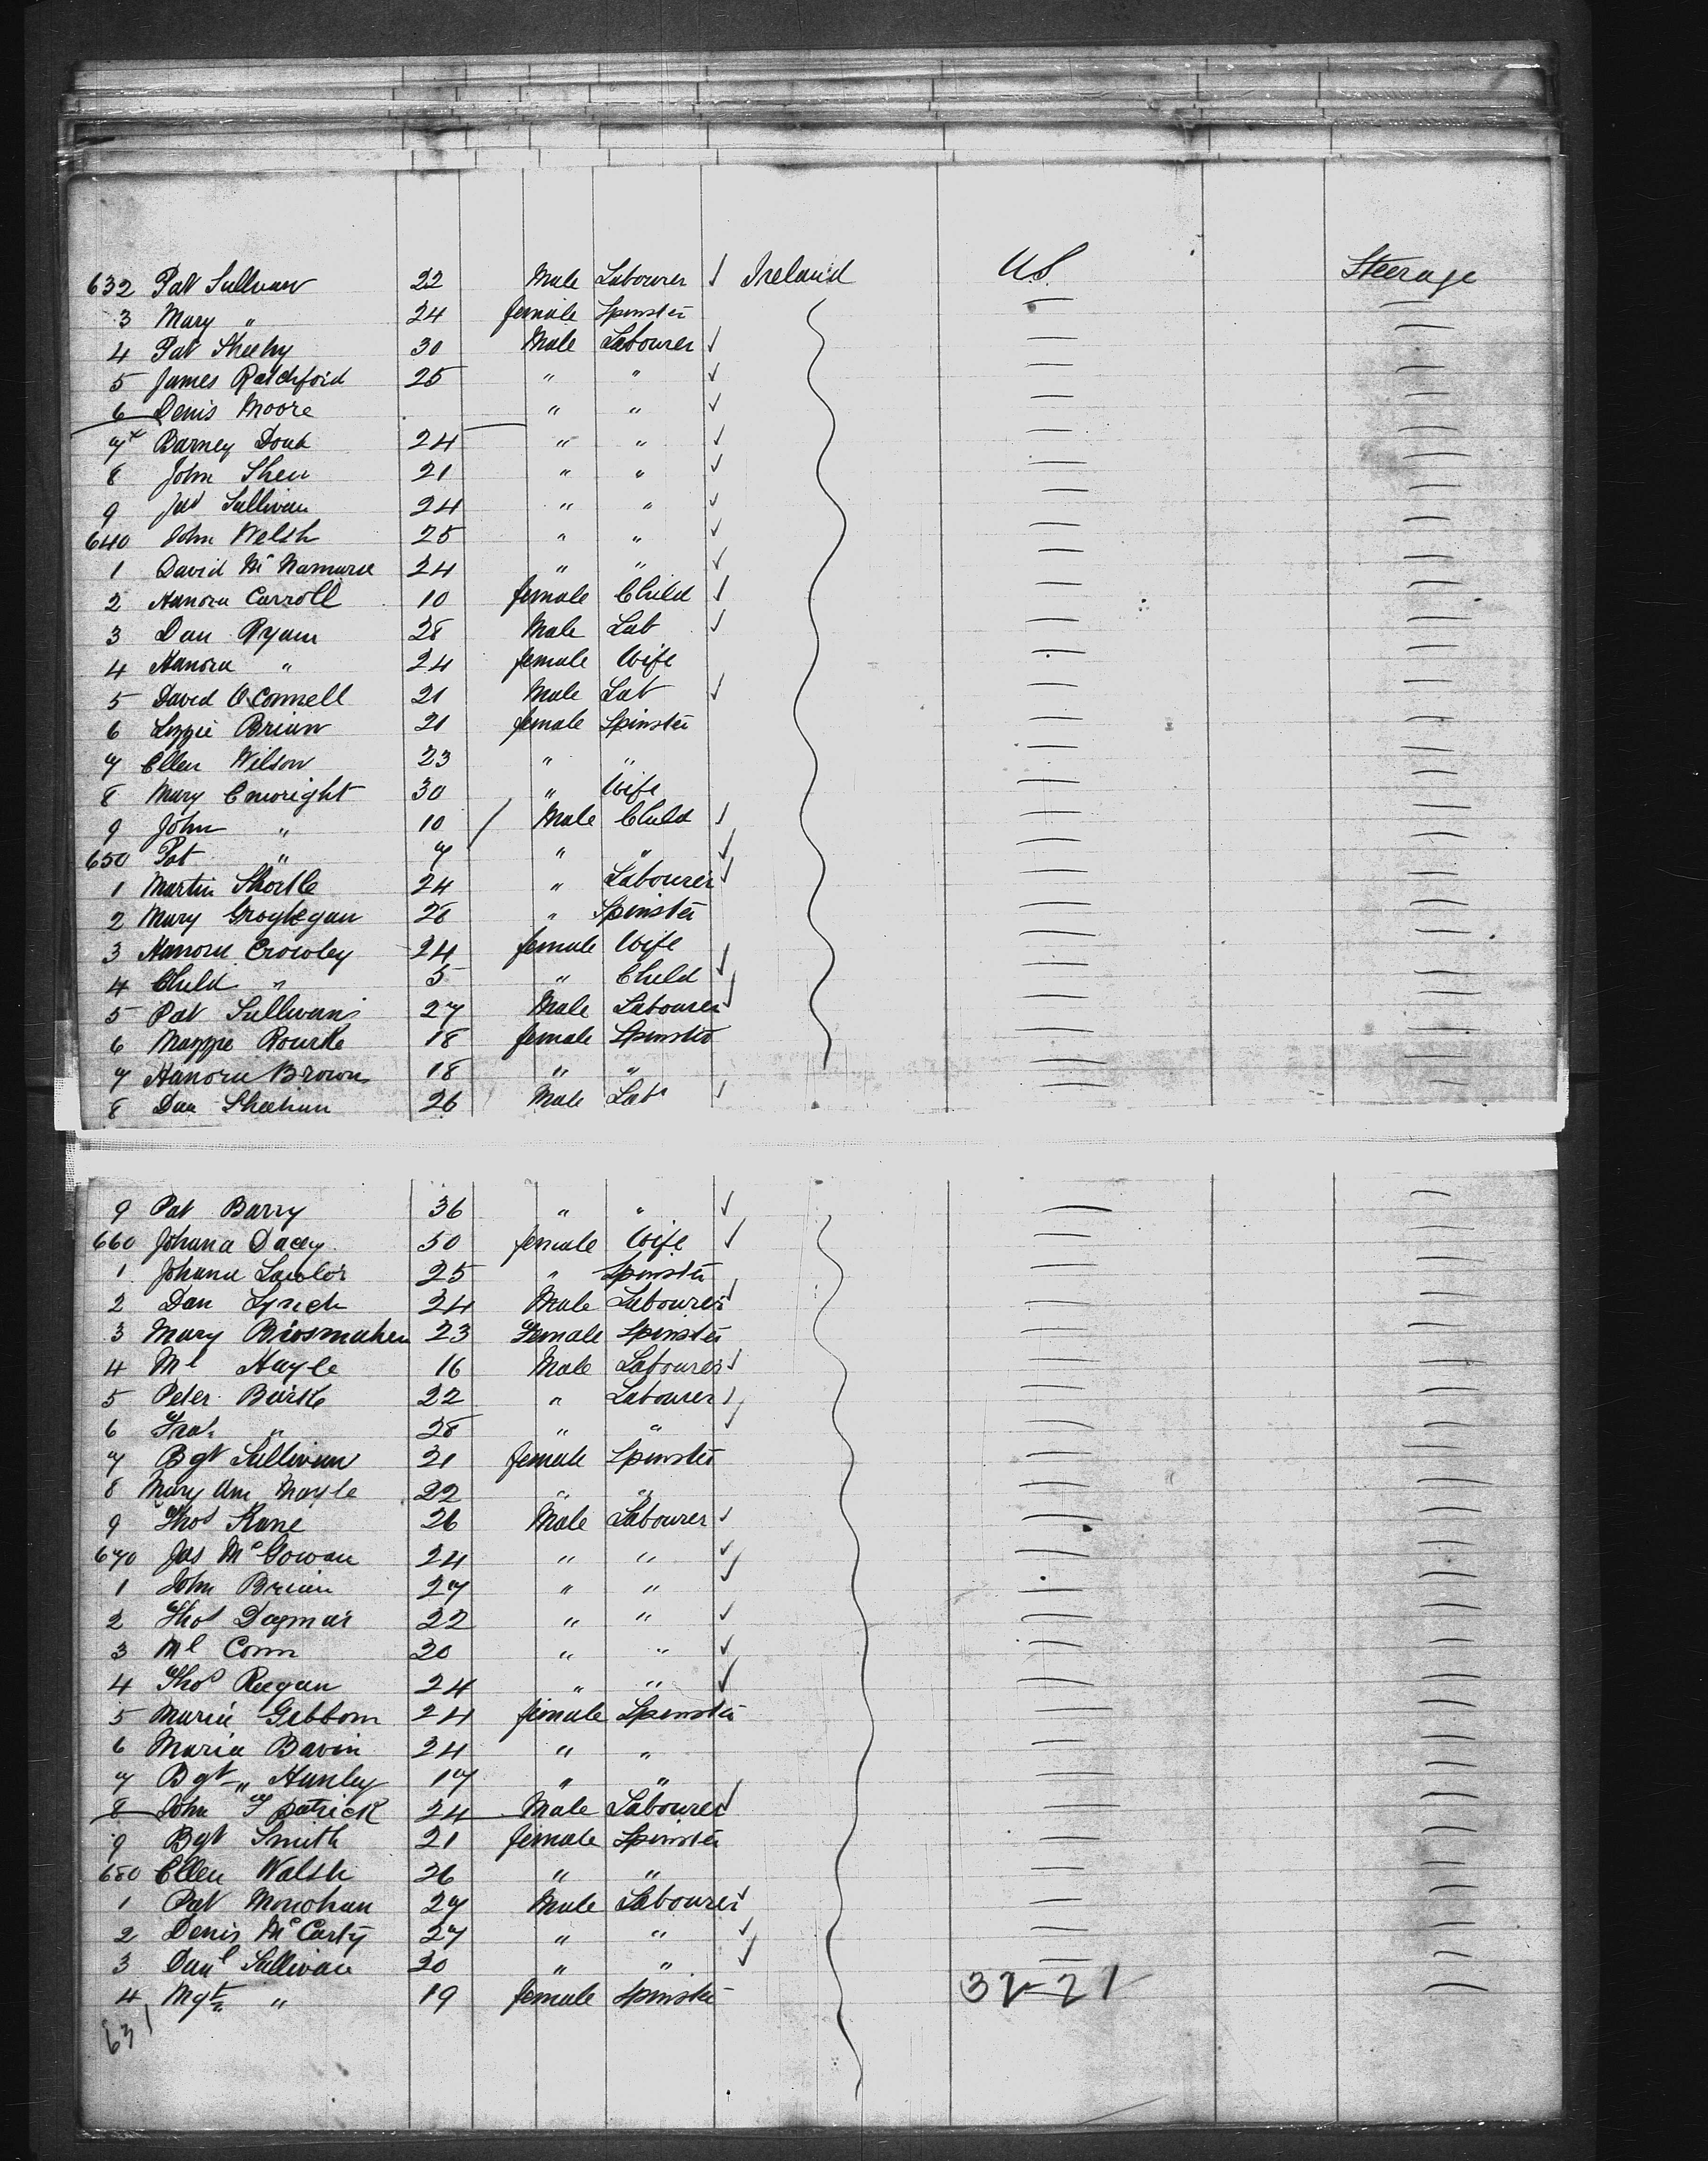 632 Pat Sullivan 22 Male Labourer ✓ Ireland U.S. Steerage
3 Mary " 24 female Spinster
4 Pat Sheehy 30 Male Labourer ✓
5 James Ratchford 25 " " ✓
6 Denis Moore " " ✓
7 Barney 24 " " ✓
8 John Shea 21 " " ✓
9 Jas Sullivan 24 " " ✓
640 John Welsh 25 " " ✓
1 David McNamara 24 " " ✓
2 Hanora Carroll 10 female Child ✓
3 Dan Ryan 28 Male Lab ✓
4 Hanora " 24 female Wife
5 David O'Connell 21 Male Lab ✓
6 Lizzie Brian 21 female Spinster
7 Ellen Wilson 23 " "
8 Mary Enwright 30 " Wife
9 John " 10 / Male Child ✓
650 Pat " 7 " " ✓
1 Martin Shortle 24 " Labourer ✓
2 Mary Groghegan 28 " Spinster
3 Hanora Crowley 24 female Wife
4 Child " 5 " Child ✓
5 Pat Sullivan 27 Male Labourer ✓
6 Maggie Rourke 18 female Spinster
7 Hanora Brown 18 " "
8 Dan Sheehan 26 Male Lab ✓
9 Pat Barry 36 " " ✓
660 Johana Dacey 50 female Wife ✓
1 Johana Lawlor 25 " Spinster
2 Dan Lynch 24 Male Labourer ✓
3 Mary 23 Female Spinster
4 Ml Hayle 16 Male Labourer ✓
5 Peter Burke 22 " Labourer ✓
6 " 28 " " ✓
7 Bgt Sullivan 21 female Spinster
8 Mary Ann Moyle 22 " "
9 Thos Kane 26 Male Labourer ✓
670 Jas McGowan 24 " " ✓
1 John Brian 27 " " ✓
2 Thos Dagmar 22 " " ✓
3 Ml Conn 20 " " ✓
4 Thos Reegan 24 " " ✓
5 Maria Gibbom 24 female Spinster
6 Maria Bavin 24 " "
7 Bgt " Hanley 17 " "
8 John F patrick 24 Male Labourer ✓
9 Bgt Smith 21 female Spinster
680 Ellen Walsh 26 " "
1 Pat Monohan 27 Male Labourer ✓
2 Denis McCarty 27 " " ✓
3 Danl Sullivan 20 " " ✓
4 Mgt " 19 female Spinster 32-21
631